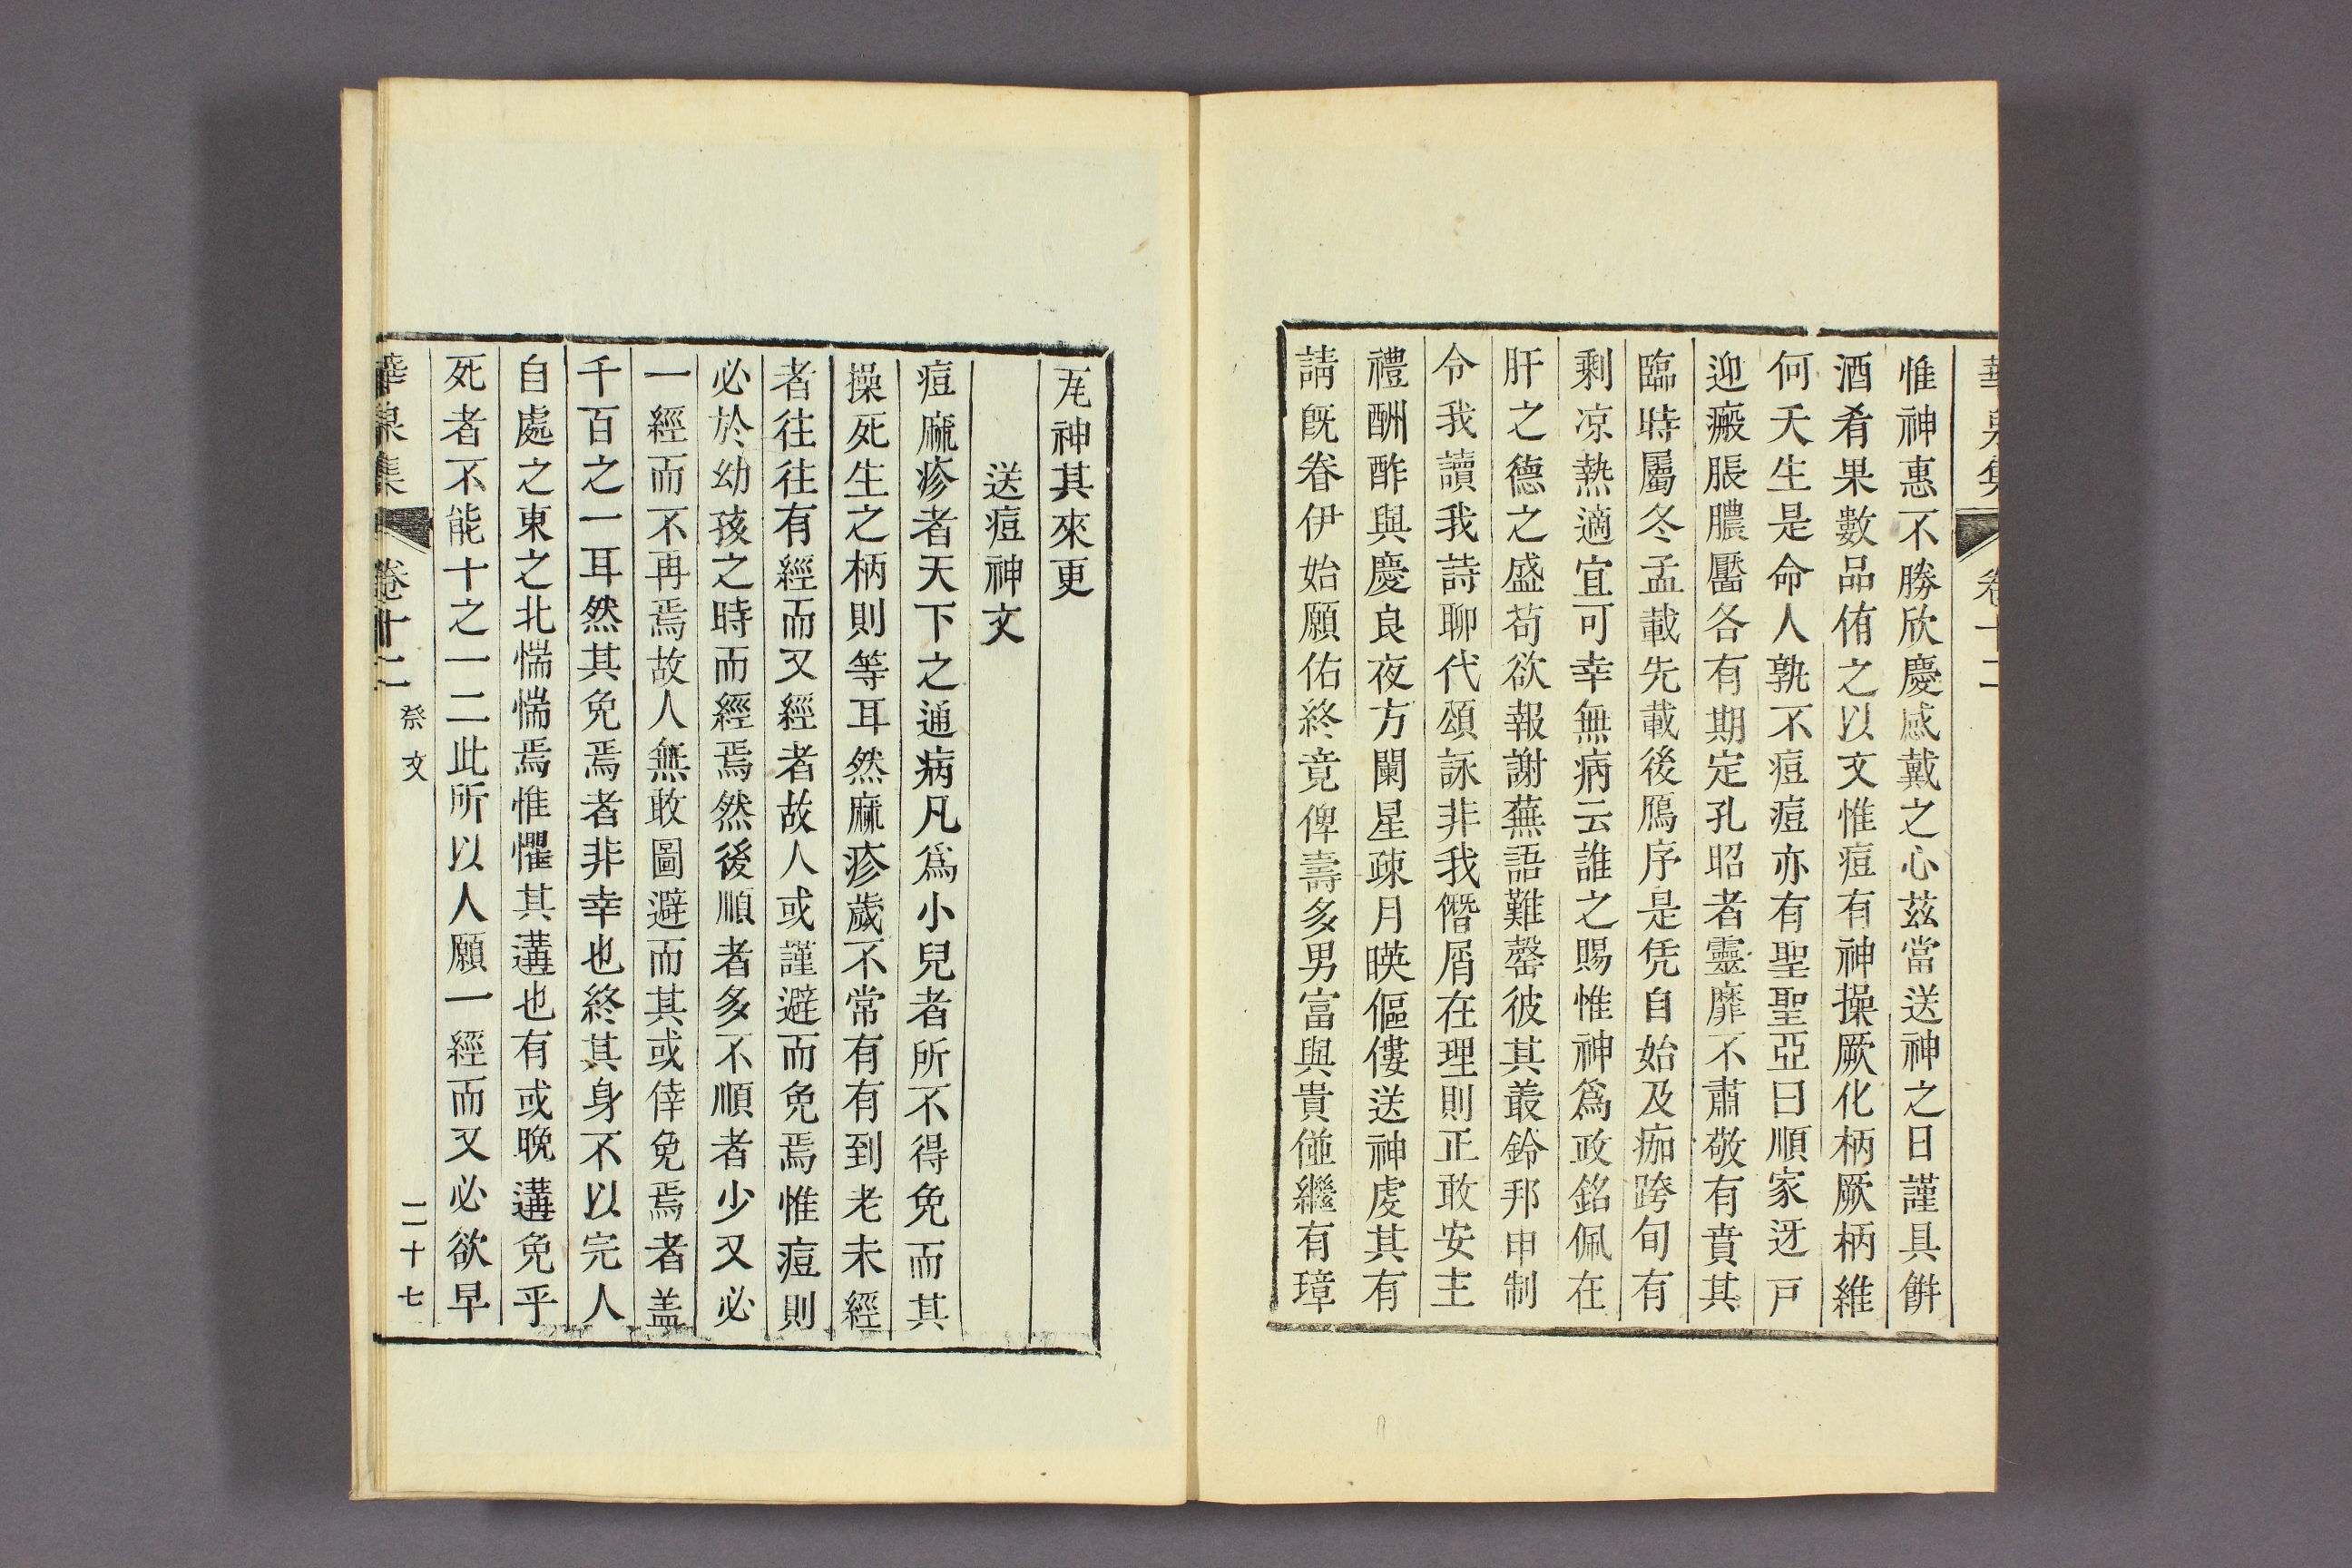 卷十二
惟神惠不勝欣慶感戴之心茲當送神之日謹具餠
酒肴果數品侑之以文惟痘有神操厥化柄厥柄維
何天生是命人孰不痘痘亦有聖聖亞曰順家迓戸
迎瘢脹膿靨各有期定孔昭者靈靡不肅敬有賁其
臨時屬冬孟載先載後鴈序是凭自始及痂跨旬有
剩凉熱適宜可幸無病云誰之賜惟神爲政銘佩在
肝之德之盛苟欲報謝蕪語難罄彼其叢鈴邦申制
令我讀我詩聊代頌詠非我僭屑在理則正敢安主
禮酬酢與慶良夜方闌星疎月暎傴僂送神虔其有
請旣眷伊始願佑終竟俾壽多男富與貴偋繼有璋
瓦神其來更
送痘神文
痘麻疹者天下之通病凡爲小兒者所不得免而其
操死生之柄則等耳然麻疹歲不常有有到老未經
者往往有經而又經者故人或謹避而免焉惟痘則
必於幼孩之時而經焉然後順者多不順者少又必
一經而不再焉故人無敢圖避而其或倖免焉者盖
千百之一耳然其免焉者非幸也終其身不以完人
自處之東之北惴惴焉惟懼其遘也有或晚遘免乎
死者不能十之一二此所以人願一經而又必欲早
華泉集 卷十二 祭文 二十七